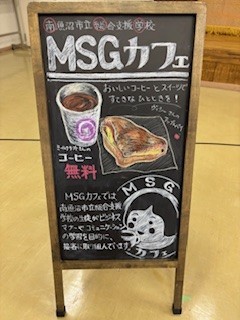 南魚沼市立総合支援学校
MSGカフェ
おいしいコーヒーとスイーツで
すてきなひとときを!
コーヒー
無料
MSGカフェでは
南魚沼市立総合支援
学校の生徒がビジネス
マナーやコミュニケーション
の学習を目的に、
接客に取り組んでいます
MSG
カフェ